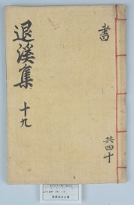 書
退溪集 十九
共四十